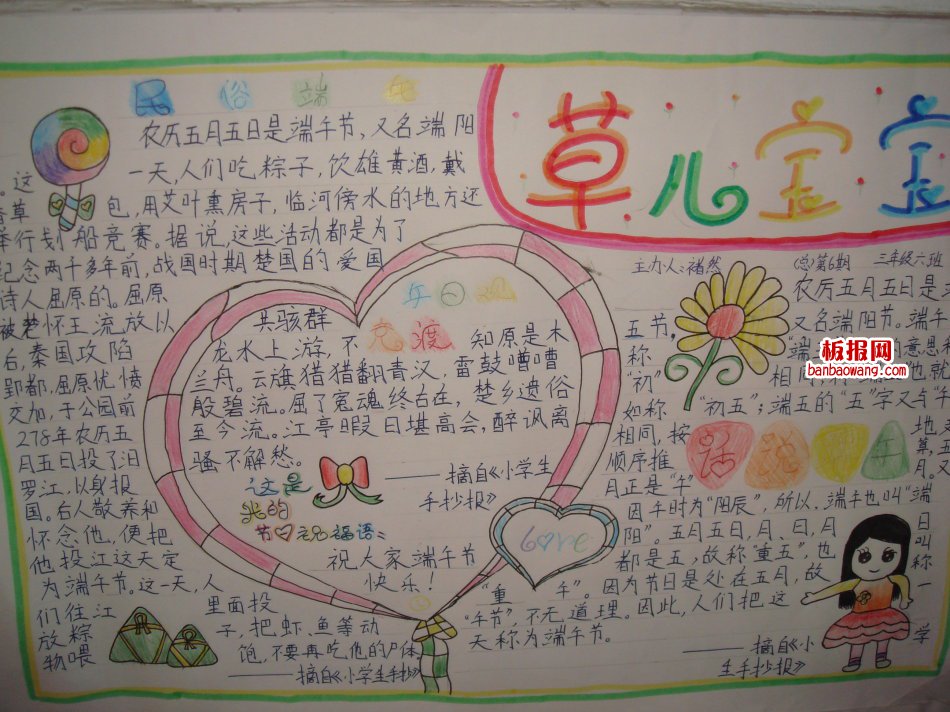 民俗端午
农历五月五日是端午节,又名端阳
。这一天,人们吃粽子,饮雄黄酒,戴
香草包,用艾叶熏房子,临河傍水的地方还
举行划船竞赛。据说,这些活动都是为了
纪念两千多年前,战国时期楚国的爱国
诗人屈原的。屈原
被楚怀王流放以
后,秦国攻陷
郢都,屈原忧愤
交加,于公园前
278年农历五
月五日投了汨
罗江,以身报
国。后人敬养和
怀念他,便把
他投江这天定
为端午节。这一天,人
们往江里面投
放粽子,把虾、鱼等动
物喂饱,不要再吃他的尸体
——摘自《小学生手抄报》
午日观
竞渡
共骇群
龙水上游,不知原是木
兰舟。云旗猎猎翻青汉,雷鼓嘈嘈
殷碧流。屈了冤魂终古在,楚乡遗俗
至今流。江亭暇日堪高会,醉讽离
骚不解愁。
——摘自《小学生
手抄报》
这是
我的
节日祝福语:
祝大家端午节
快乐!
Love
草儿宝宝
主办人:褚然 (总)第6期 三年级六班
农历五月五日是
五节。又名端阳节。端午
称"端 的意思
"初" 相同, 也就
如称"初五";端五的"五"字又与"午
相同,按地支
顺序推算,五
月正是"午"月。又
话说端午
因午时为"阳辰",所以,端午也叫"端
阳"。五月五日,月、日,月日
都是五,故称"重五",也叫称
"重午"。因为节日是处在五月,故一
"午节",不无道理。因此,人们把这
天称为端午节。
——摘自《小学
生手抄报》
板报网
banbaowang.com